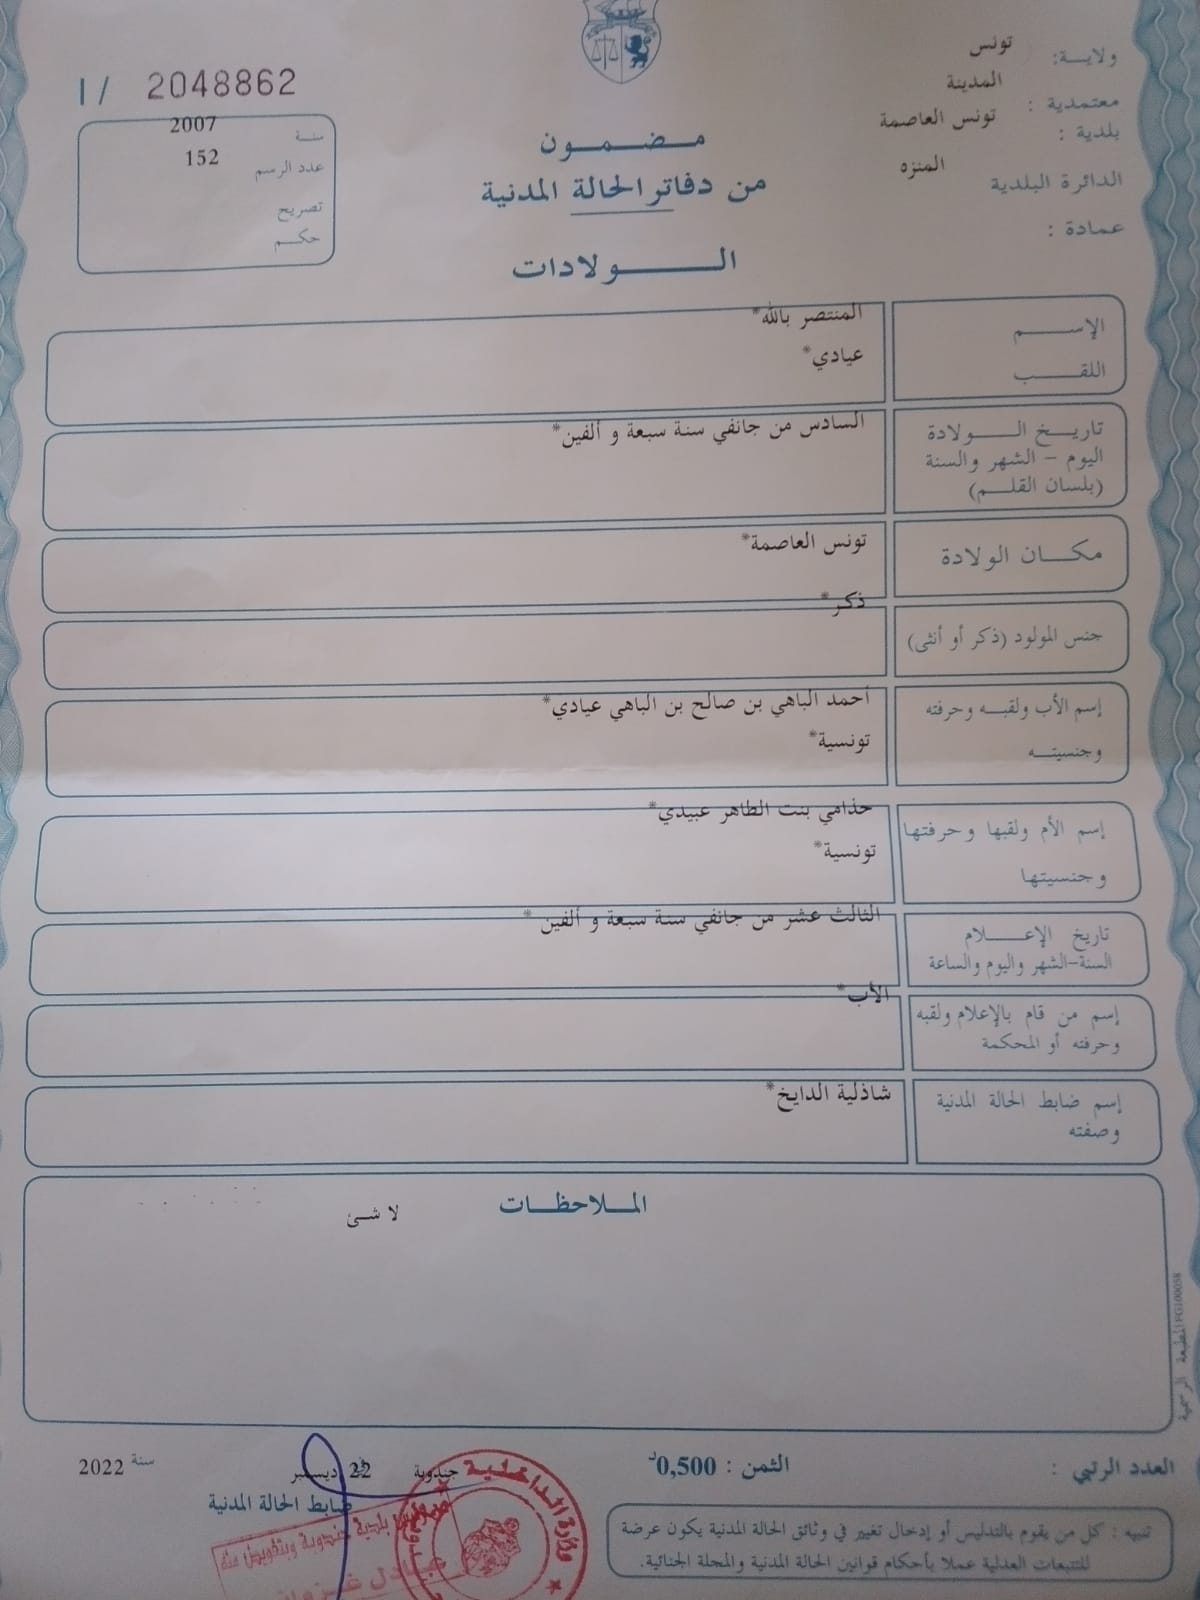 ولاية: تونس
معتمدية : المدينة
بلدية : تونس العاصمة
الدائرة البلدية المنزه
عمادة :
I / 2048862
سنة 2007
عدد الرسم 152
تصريح
حكم
مضمون
من دفاتر الحالة المدنية
الولادات
الإسم المنتصر بالله*
اللقب عيادي*
تاريخ الولادة السادس من جانفي سنة سبعة و ألفين*
اليوم - الشهر والسنة
(بلسان القلم)
مكان الولادة تونس العاصمة*
جنس المولود (ذكر أو أنثى) ذكر*
إسم الأب ولقبه وحرفته أحمد الباهي بن صالح بن الباهي عيادي*
وجنسيته تونسية*
إسم الأم ولقبها وحرفتها حذامي بنت الطاهر عبيدي*
وجنسيتها تونسية*
تاريخ الإعلام الثالث عشر من جانفي سنة سبعة و ألفين*
السنة-الشهر واليوم والساعة
إسم من قام بالإعلام ولقبه الأب*
وحرفته أو المحكمة
إسم ضابط الحالة المدنية شاذلية الدايخ*
وصفته
الملاحظات
لا شئ
المطبعة الرسمية FG100058
العدد الرتبي :
الثمن : 0,500د
جندوبة 22 ديسمبر سنة 2022
ضابط الحالة المدنية
بلدية جندوبة وبتفويض منه
وزارة الداخلية
تنبيه : كل من يقوم بالتدليس أو إدخال تغيير في وثائق الحالة المدنية يكون عرضة
للتتبعات العدلية عملا بأحكام قوانين الحالة المدنية والمجلة الجنائية.